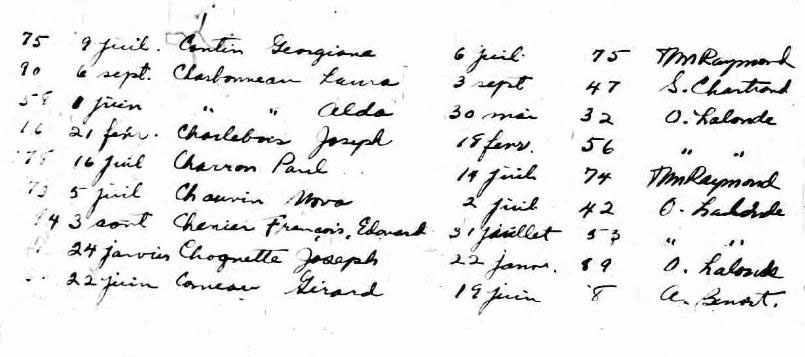 75 9 juil. Cantin Georgiana 6 juil. 75 Raymond
90 6 sept. Charbonneau Laura 3 sept 47 S. Chartrand
58 1 juin " " Alda 30 mai 32 O. Lalonde
16 21 fevr. Charlebois Joseph 19 fevr. 56 " "
78 16 juil Charron Paul 14 juil 74 Raymond
73 5 juil Chauvin Nova 2 juil 42 O. Lalonde
94 3 aout Chenier François, Edouard 31 juillet 53 " "
24 janvier Choquette Joseph 22 janv. 89 O. Lalonde
22 juin Comeau Girard 19 juin 8 A. Benoit.